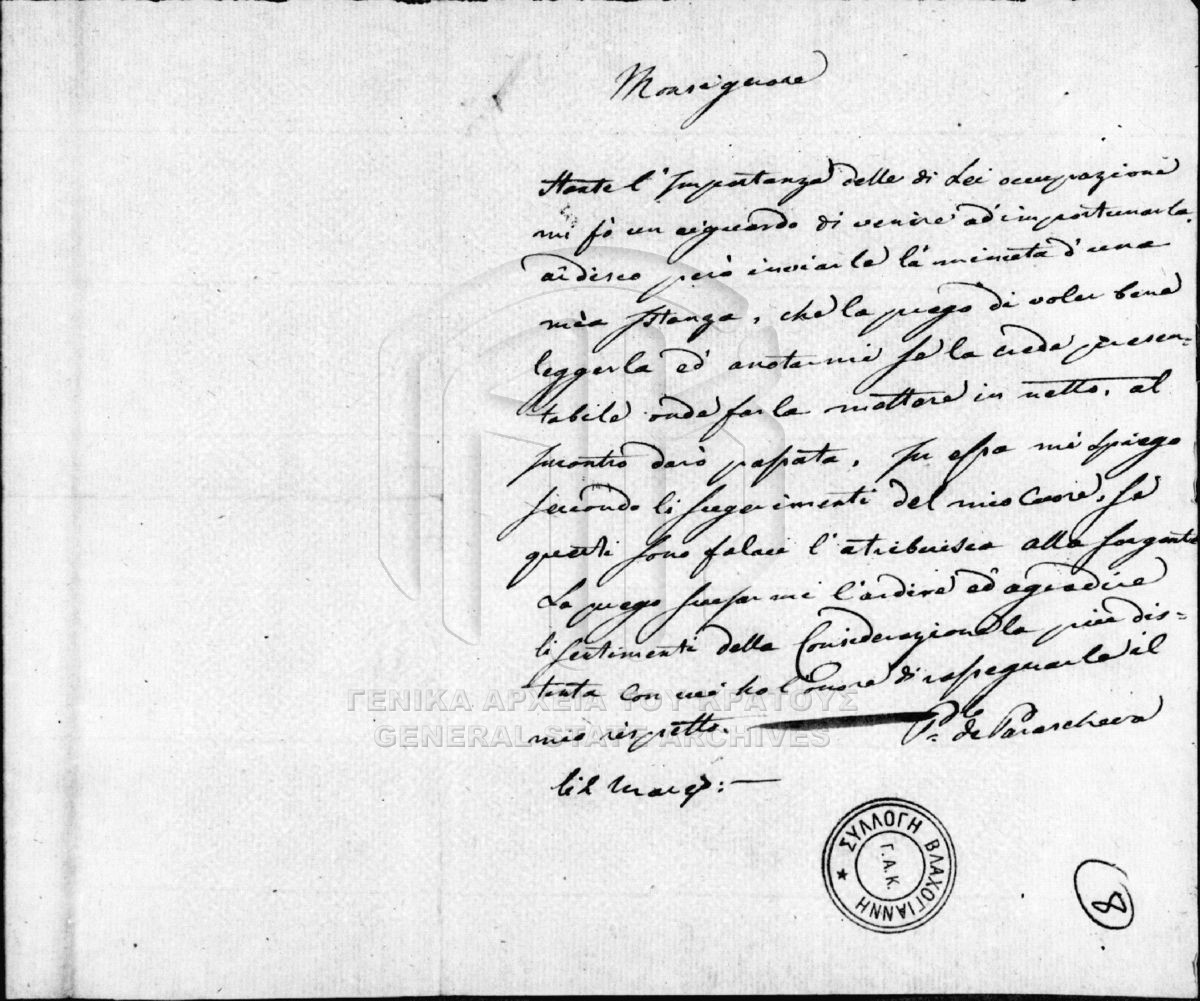 Monsignore
Stante l'Importanza delle di Lei occupazione
mi fò un riguardo di venire ad importunarla.
ardisco però inviarle la minuta d'una
mia Istanza, che la prego di voler bene
leggerla ed anotarmi se la creda presen=
tabile onde farla mettere in netto, al
Incontro darò passata, In essa mi spiego
secondo li sugerimenti del mio Cuore, se
questi sono falaci l'atribuisca alla sorgente
La prego scusarmi l'ardire ed agradire
li sentimenti della Considerazione la più dis=
tinta con cui ho l'onore di rassegnarle il
mio rispetto.
de Parascheva
li 2 Marzo:
ΓΕΝΙΚΑ ΑΡΧΕΙΑ ΤΟΥ ΚΡΑΤΟΥΣ
GENERAL STATE ARCHIVES
ΣΥΛΛΟΓΗ ΒΛΑΧΟΓΙΑΝΝΗ
Γ.Α.Κ.
8